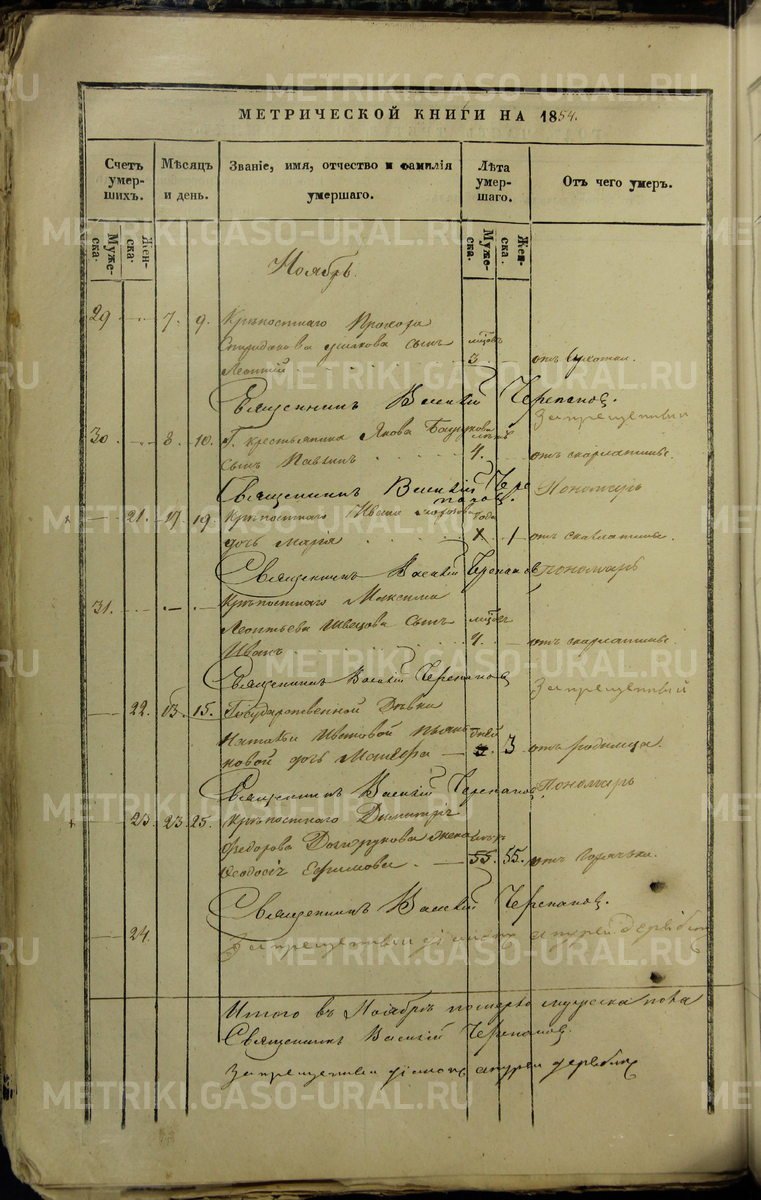 МЕТРИЧЕСКОЙ КНИГИ НА 1854.
Счетъ умер-шихъ.
Муже-ска.
Жен-ска.
Мѣсяцъ и день.
Званіе, имя, отчество и фамилія умершаго.
Лѣта умер-шаго.
Муже-ска.
Жен-ска.
Отъ чего умеръ.
Ноябрь.
29 7. 9. Крѣпостнаго Прохора
Спиридонова сынъ мѣсяцъ
Леонтій 3. отъ сухотки.
Священникъ Василій Черепановъ.
Запрещенный
30. 8. 10. Г. крестьянина Якова лѣтъ
сынъ Павлинъ 4. отъ скарлатины.
Священникъ Василій Черепановъ.
Пономарь
21. 17. 19. Крѣпостнаго Ивана года
дочь Марія 1 отъ скарлатины.
Священникъ Василій Черепановъ
Пономарь
31. Крѣпостнаго Максима
Леонтьева Швецова сынъ
Иванъ 4. отъ скарлатины.
Священникъ Василій Черепановъ
Запрещенный
22. 13. 15. Государственной Дѣвки
Ивановой дней
новой дочь 3 отъ родимца.
Священникъ Василій Черепановъ
Пономарь
23. 23. 25. Крѣпостнаго Димитрія
Федорова Долгорукова жена
Ефимова 55. 55. отъ горячки.
Священникъ Василій Черепановъ.
24.
Запрещенный
Итого въ Ноябрѣ померло мужеска пола
Священникъ Василій Черепановъ.
Запрещенный
METRIKI.GASO-URAL.RU